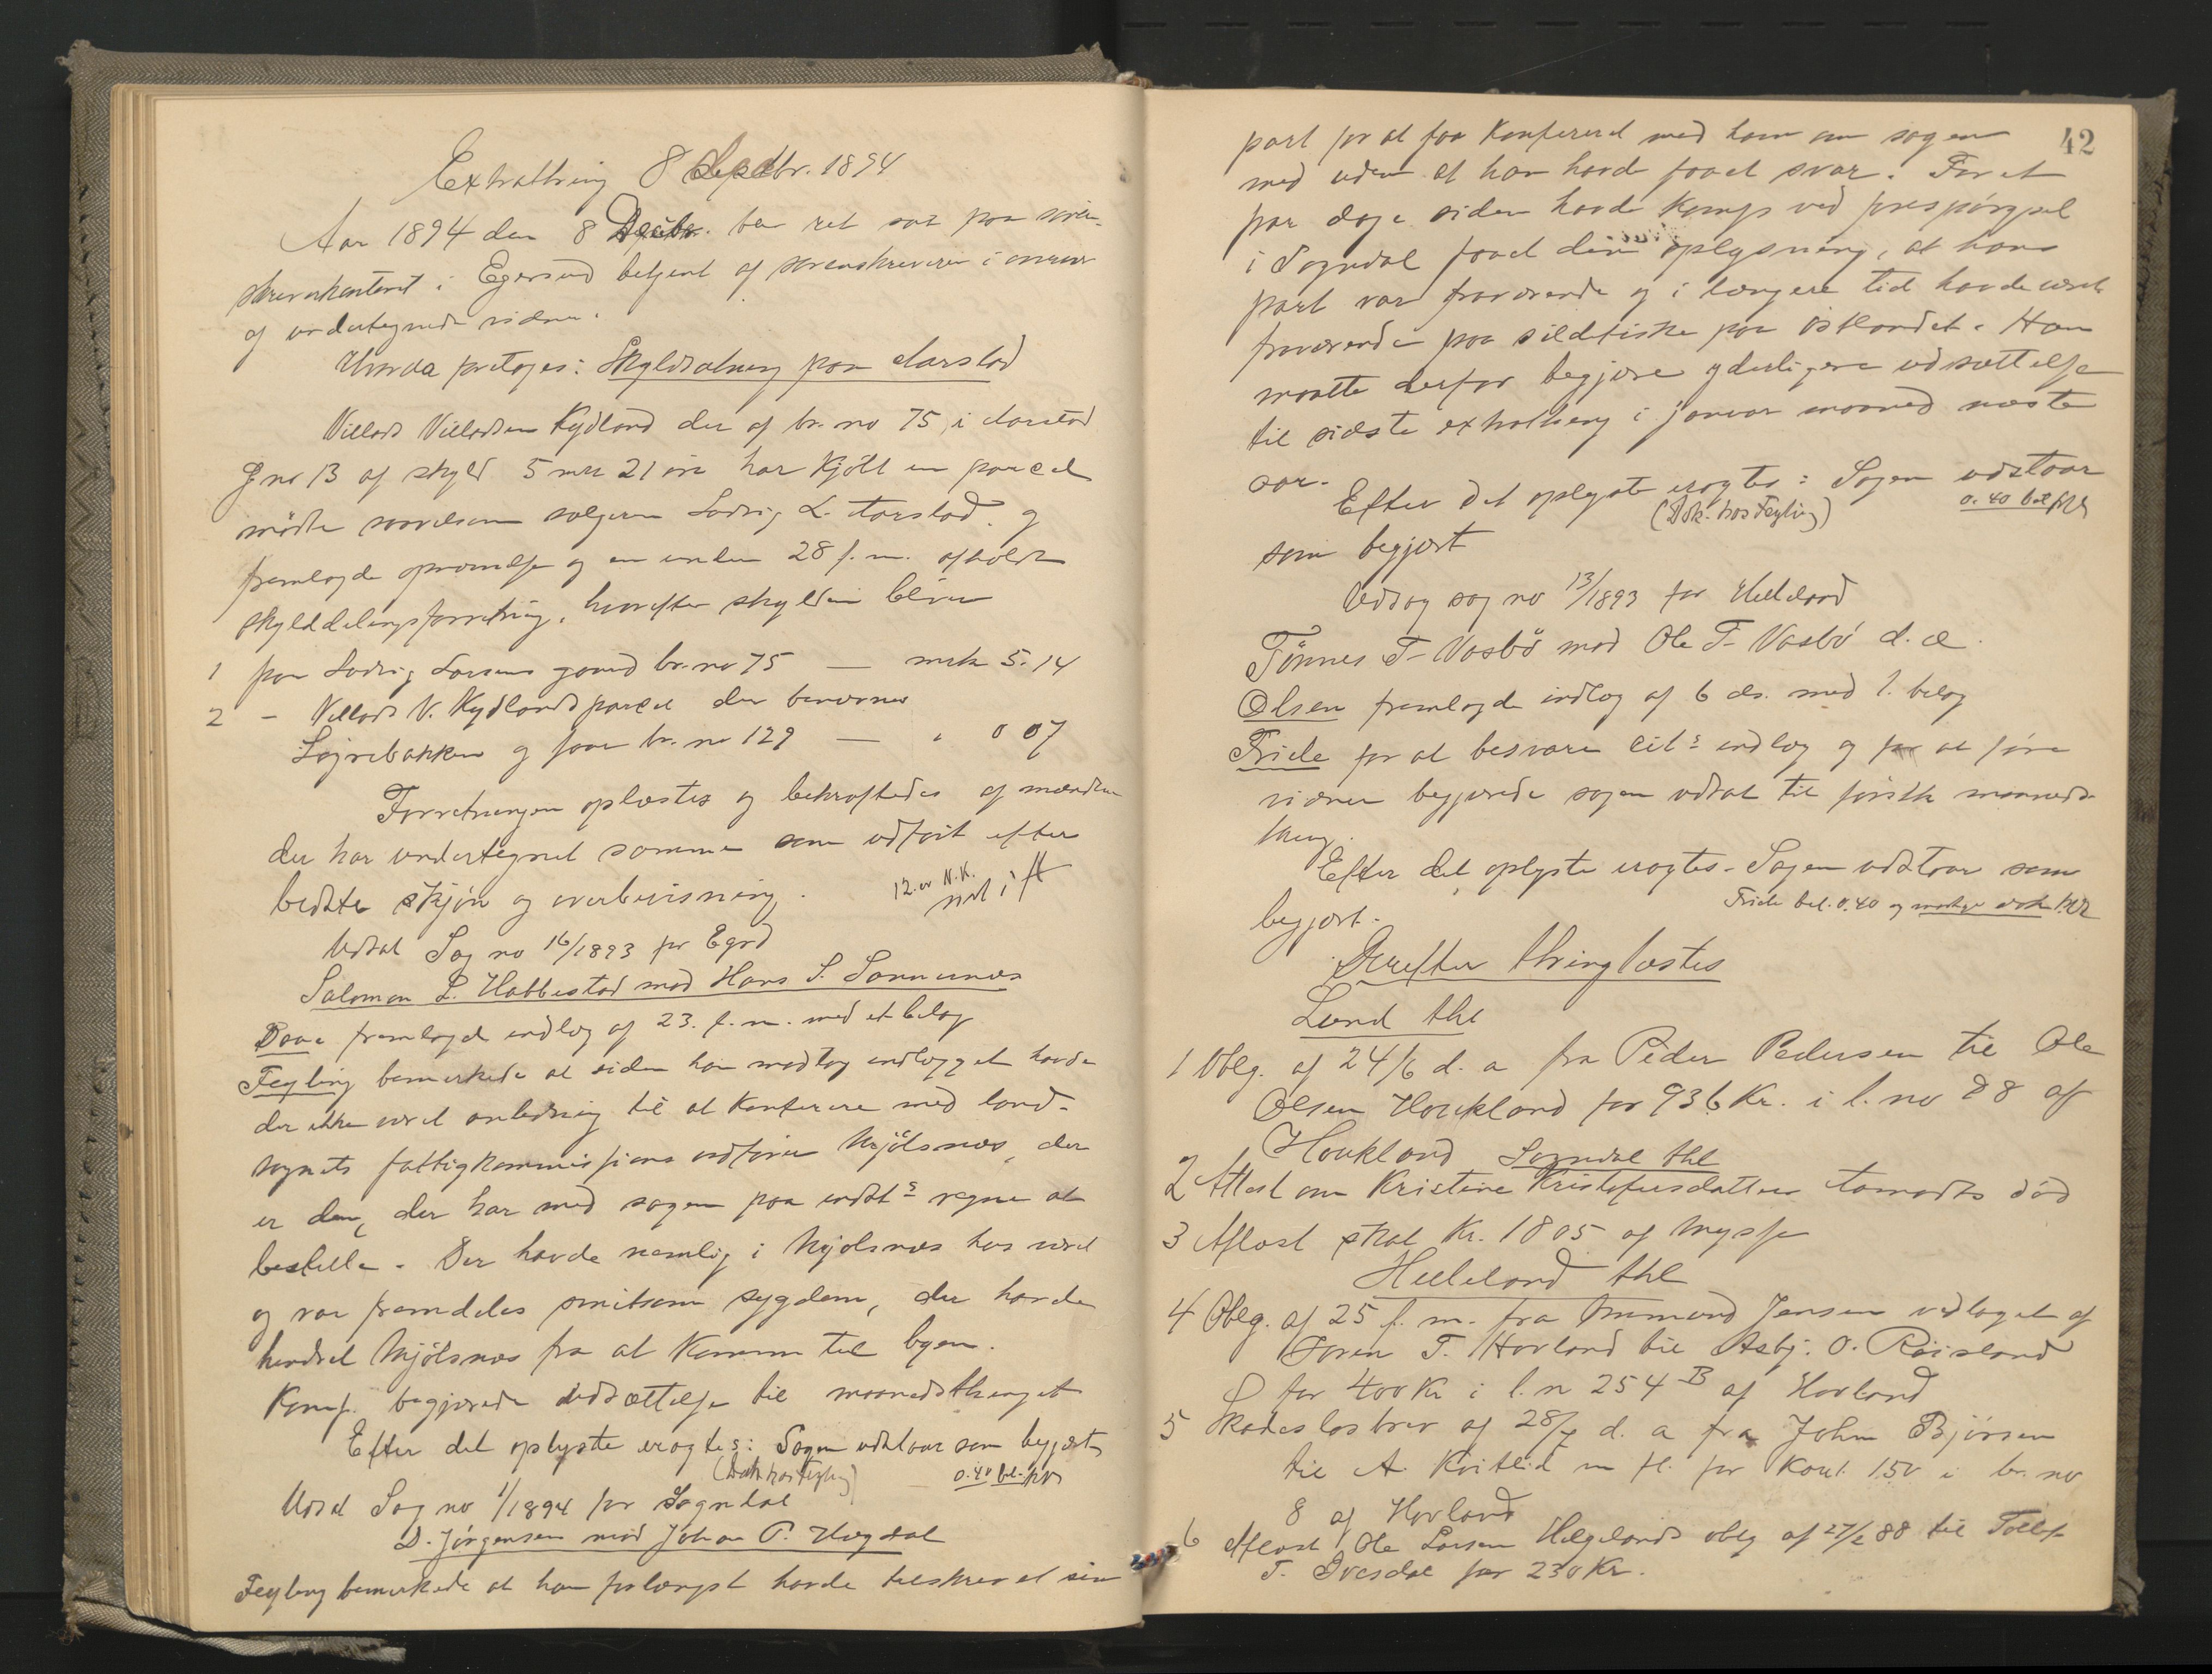 Extrathing 8 Decbr. 1894
Aar 1894 den 8 Decbr. blev ret sat paa soren-
skriverkontoret i Egersund betjent af sorenskriveren i
og undertegnede vidner.
Hvorda foretoges: Skyldsætning paa Aarstad
Villads Villadsen Kydland der af br. no 75 i Aarstad
G no 13 af skyld 5 mrk 21 øre har kjøbt en parcel
mødte saavelsom sælgeren Ludvig L. Aarstad og
fremlagde opnævnelse og en under 28 f. m. afholdt
skylddelingsforretning, hvorefter skylden bliver
1 paa Ludvig Larsens gaard br. no 75 — mrk 5.14
2 - Villads V. Kydlands parcel der benævnes
og faar br. no 129 — " 0 07
Forretningen oplæstes og bekræftedes af mændene
der har undertegnet samme som udført efter
bedste skjøn og overbevisning.
12. ov N.K.
Udsat Sag no 16/1893 for Egrd
Salomon L. Habbestad mod Hans S. Sannesnæs
Daae fremlagde indlæg af 23. f. m. med et bilag
Feyling bemærkede at siden han modtog indlægget havde
der ikke været anledning til at konferere med land-
sognets fattigkommissions ordfører Mjølsnæs, der
er den, der har med sagen paa indst s vegne at
bestille. Der havde nemlig i Mjølsnæs hus været
og var fremdeles smitsom sygdom, der havde
hindret Mjølsnæs fra at komme til byen.
Komp. begjærede udsættelse til maanedsthinget
Efter det oplyste eragtes: Sagen udstaar som begjært
(Dok. hos Feyling) 0.40 bet.
Udsat Sag no 1/1894 for Sogndal
D. Jørgensen mod Johan P. Haydal
Feyling bemærkede at han forlængst havde tilskrevet sin
42
part for at faa konfereret med ham om sagen
med uden at han havde faaet svar. For et
par dage siden havde komp ved forespørgsel
i Sogndal faaet den oplysning, at hans
part var fraværende og i længere tid havde været
fraværende paa sildefiske paa østlandet. Han
maatte derfor begjære yderligere udsættelse
til sidste extrathing i januar maaned næste
aar.
Efter det oplyste eragtes: Sagen udstaar
(Dok. hos Feyling) 0.40 bet
som begjært
Udsag sag no 13/1893 for Helleland
Tønnes T. Vasbø mod Ole T. Vasbø d. æ.
Olsen fremlagde indlæg af 6 ds. med 1. bilag
Friele for at besvare cit s indlæg og for at føre
vidner begjærede sagen udsat til første maaneds
thing.
Efter det oplyste eragtes. Sagen udstaar som
Friele bet. 0.40 og
begjært.
Derefter thinglæstes
Lund thl
1 Oblg. af 24/6 d. a fra Peder Pedersen til Ole
Olsen Haukland for 936 Kr. i l. no 88 af
Haukland Sogndal thl
2 Attest om Kristine Kristofersdatter død
3 Aflæst skal Kr. 1805 af Mysse
Helleland thl
4 Oblg. af 25 f. m. fra Ommund Jensen vedtaget af
Søren T. Hovland til Asbj. O. Røisland
for 400 Kr i l. n 254 B af Hovland
5 Skadesløsbrev af 28/7 d. a fra John Bjørsen
til A. Kvitlid m fl. for Kaut. 150 i br. no
8 af Hovland
6 Aflæst Ole Larsen Helgelands oblg af 27/2 88 til Tollef
T. for 230 Kr.